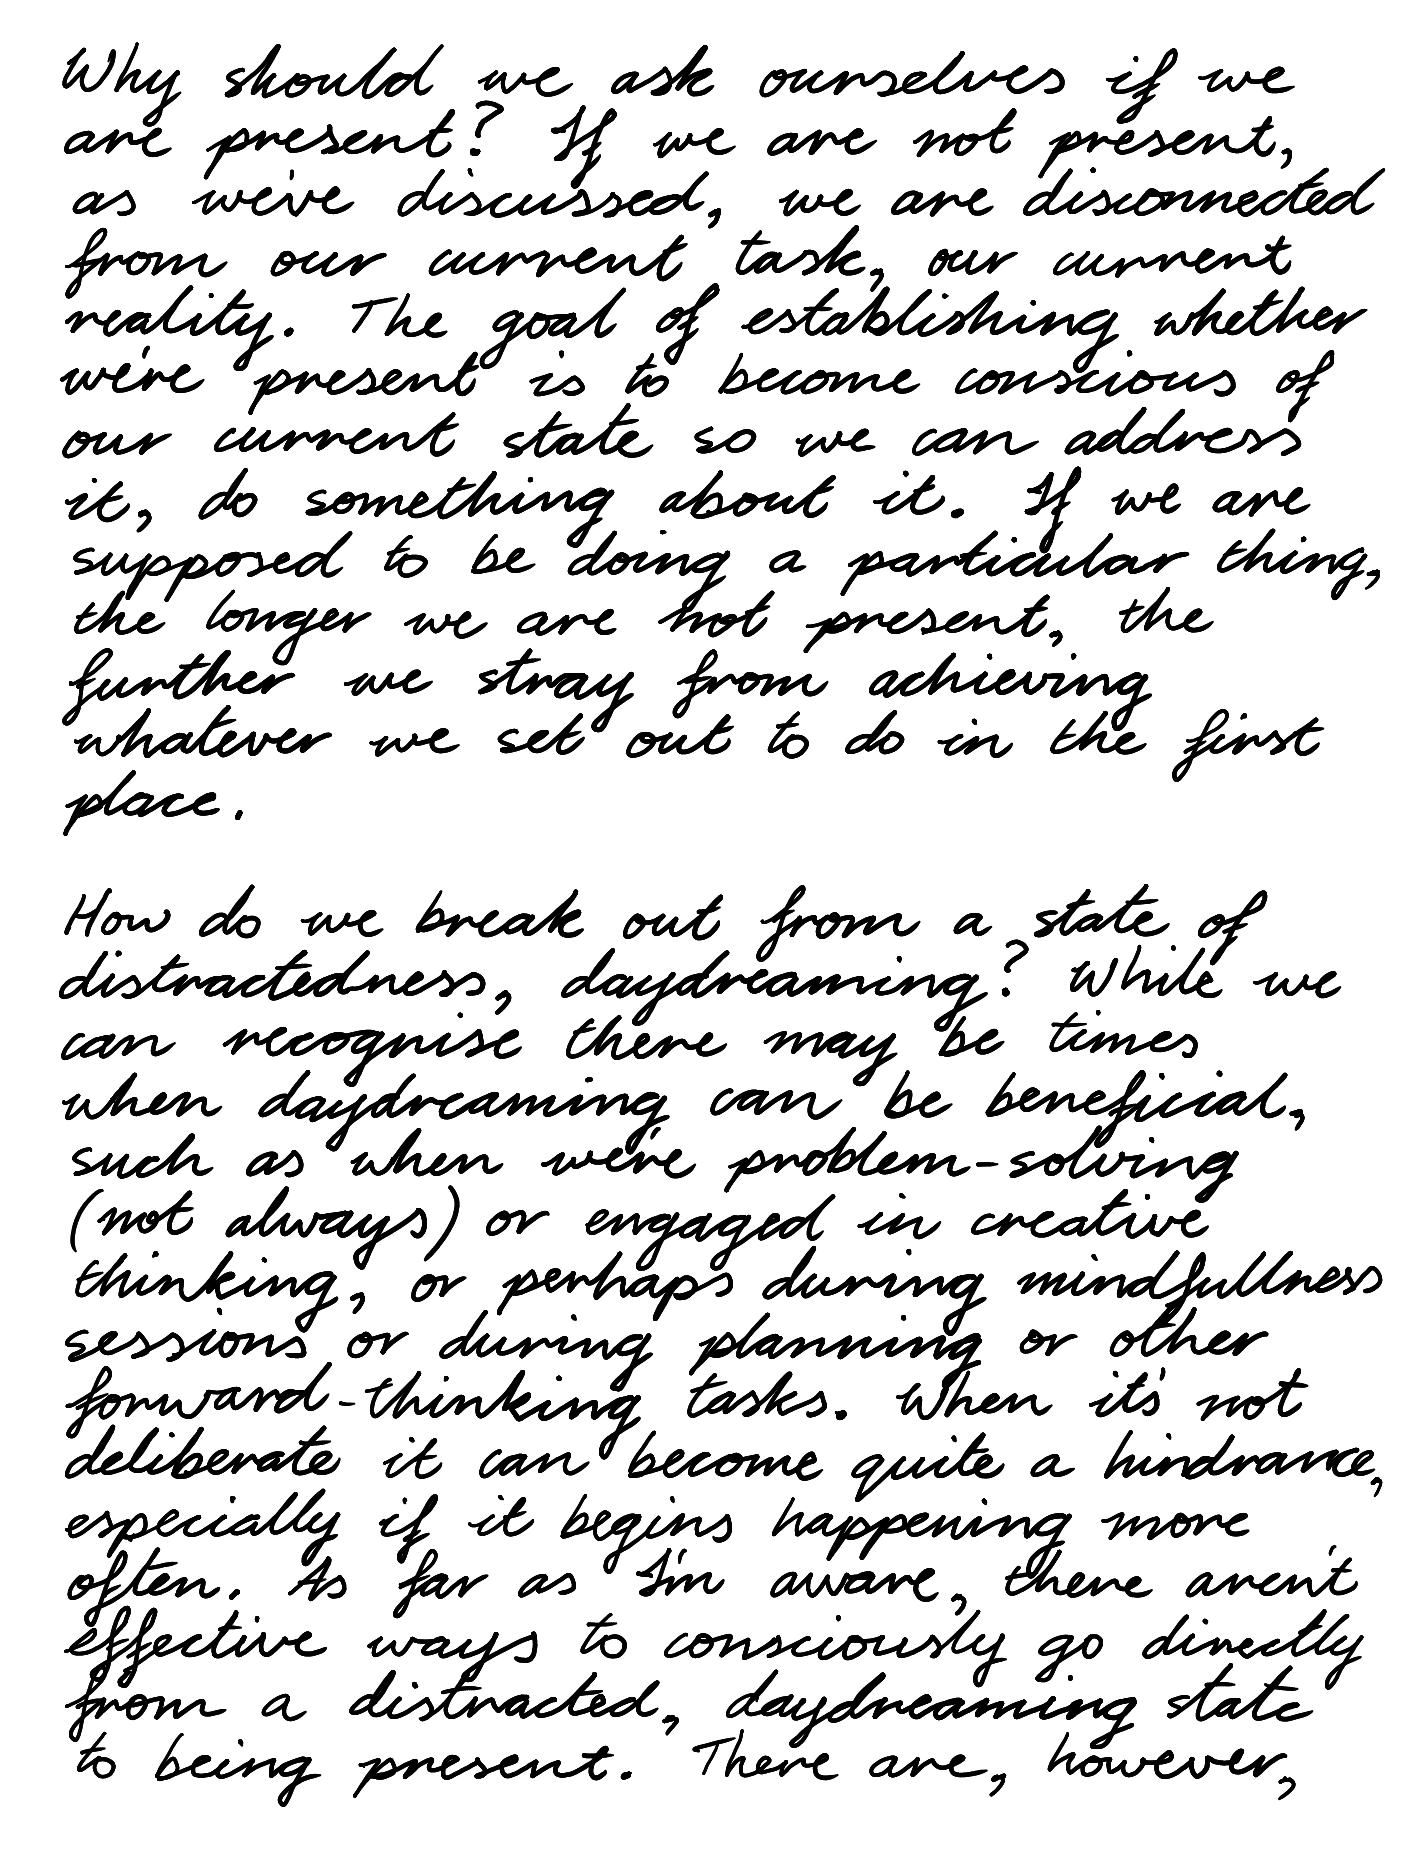 Why should we ask ourselves if we
are present? If we are not present,
as we've discussed, we are disconnected
from our current task, our current
reality. The goal of establishing whether
we're present is to become conscious of
our current state so we can address
it, do something about it. If we are
supposed to be doing a particular thing,
the longer we are not present, the
further we stray from achieving
whatever we set out to do in the first
place.

How do we break out from a state of
distractedness, daydreaming? While we
can recognise there may be times
when daydreaming can be beneficial,
such as when we're problem-solving
(not always) or engaged in creative
thinking, or perhaps during mindfullness
sessions or during planning or other
forward-thinking tasks. When it's not
deliberate it can become quite a hindrance,
especially if it begins happening more
often. As far as I'm aware, there aren't
effective ways to consciously go directly
from a distracted, daydreaming state
to being present. There are, however,